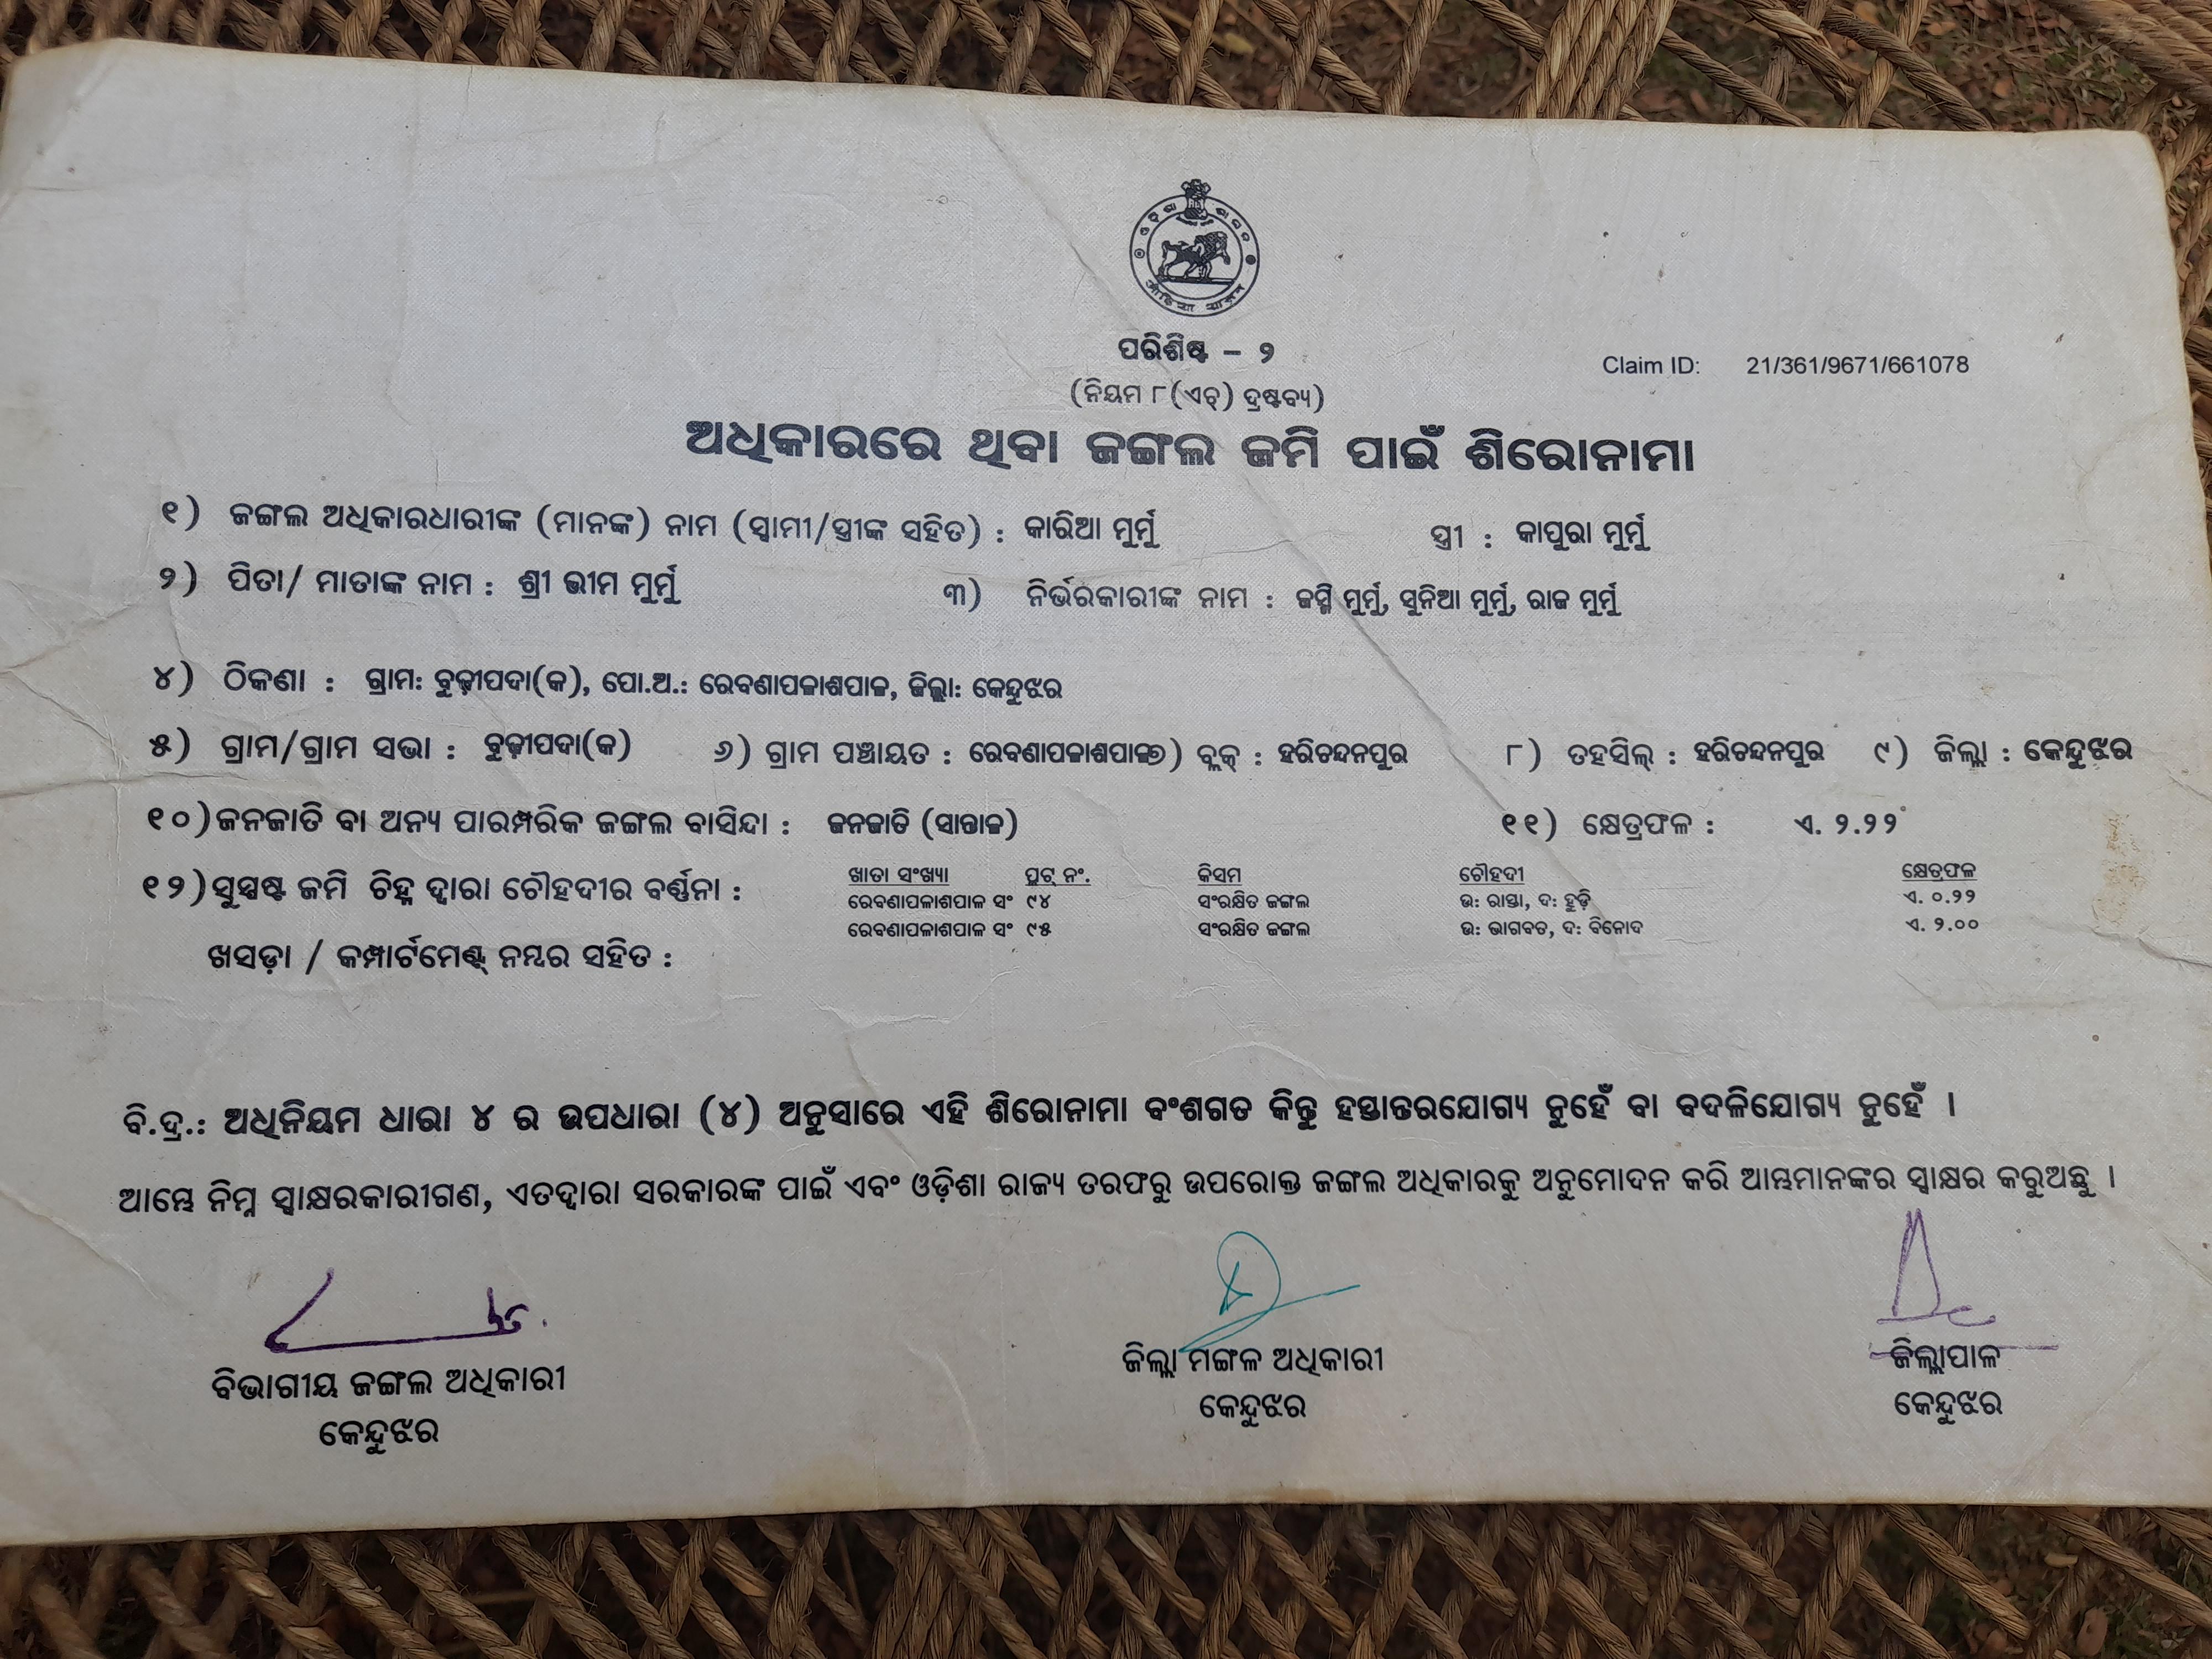 ପରିଶିଷ୍ଟ – ୨
Claim ID: 21/361/9671/661078
(ନିୟମ ୮(ଏଚ୍) ଦ୍ରଷ୍ଟବ୍ୟ)
ଅଧିକାରରେ ଥିବା ଜଙ୍ଗଲ ଜମି ପାଇଁ ଶିରୋନାମା
୧) ଜଙ୍ଗଲ ଅଧିକାରଧାରୀଙ୍କ (ମାନଙ୍କ) ନାମ (ସ୍ୱାମୀ/ସ୍ତ୍ରୀଙ୍କ ସହିତ) : କାରିଆ ମୁର୍ମୁ ସ୍ତ୍ରୀ : କାପୁରା ମୁର୍ମୁ
୨) ପିତା/ ମାତାଙ୍କ ନାମ : ଶ୍ରୀ ଭୀମ ମୁର୍ମୁ ୩) ନିର୍ଭରକାରୀଙ୍କ ନାମ : ଜସ୍ମି ମୁର୍ମୁ, ସୁନିଆ ମୁର୍ମୁ, ରାଜ ମୁର୍ମୁ
୪) ଠିକଣା : ଗ୍ରାମ: ବୁଢ଼ୀପଦା(କ), ପୋ.ଅ.: ରେବଣାପଳାଶପାଳ, ଜିଲ୍ଲା: କେନ୍ଦୁଝର
୫) ଗ୍ରାମ/ଗ୍ରାମ ସଭା : ବୁଢ଼ୀପଦା(କ) ୬) ଗ୍ରାମ ପଞ୍ଚାୟତ : ରେବଣାପଳାଶପାଳ ୭) ବ୍ଲକ୍ : ହରିଚନ୍ଦନପୁର ୮) ତହସିଲ୍ : ହରିଚନ୍ଦନପୁର ୯) ଜିଲ୍ଲା : କେନ୍ଦୁଝର
୧୦) ଜନଜାତି ବା ଅନ୍ୟ ପାରମ୍ପରିକ ଜଙ୍ଗଲ ବାସିନ୍ଦା : ଜନଜାତି (ସାନ୍ତାଳ) ୧୧) କ୍ଷେତ୍ରଫଳ : ଏ. ୨.୨୨
ଖାତା ସଂଖ୍ୟା ପ୍ଲଟ୍ ନଂ. କିସମ ଚୌହଦୀ କ୍ଷେତ୍ରଫଳ
୧୨) ସୁସ୍ପଷ୍ଟ ଜମି ଚିହ୍ନ ଦ୍ୱାରା ଚୌହଦୀର ବର୍ଣ୍ଣନା :
ରେବଣାପଳାଶପାଳ ସଂ ୯୪ ସଂରକ୍ଷିତ ଜଙ୍ଗଲ ଉ: ରାସ୍ତା, ଦ: ହୁଡ଼ି ଏ. ୦.୨୨
ରେବଣାପଳାଶପାଳ ସଂ ୯୫ ସଂରକ୍ଷିତ ଜଙ୍ଗଲ ଉ: ଭାଗବତ, ଦ: ବିନୋଦ ଏ. ୨.୦୦
ଖସଡ଼ା / କମ୍ପାର୍ଟମେଣ୍ଟ୍ ନମ୍ବର ସହିତ :
ବି.ଦ୍ର.: ଅଧିନିୟମ ଧାରା ୪ ର ଉପଧାରା (୪) ଅନୁସାରେ ଏହି ଶିରୋନାମା ବଂଶଗତ କିନ୍ତୁ ହସ୍ତାନ୍ତରଯୋଗ୍ୟ ନୁହେଁ ବା ବଦଳିଯୋଗ୍ୟ ନୁହେଁ ।
ଆମ୍ଭେ ନିମ୍ନ ସ୍ୱାକ୍ଷରକାରୀଗଣ, ଏତଦ୍ୱାରା ସରକାରଙ୍କ ପାଇଁ ଏବଂ ଓଡ଼ିଶା ରାଜ୍ୟ ତରଫରୁ ଉପରୋକ୍ତ ଜଙ୍ଗଲ ଅଧିକାରକୁ ଅନୁମୋଦନ କରି ଆମ୍ଭମାନଙ୍କର ସ୍ୱାକ୍ଷର କରୁଅଛୁ ।
ବିଭାଗୀୟ ଜଙ୍ଗଲ ଅଧିକାରୀ ଜିଲ୍ଲା ମଙ୍ଗଳ ଅଧିକାରୀ ଜିଲ୍ଲାପାଳ
କେନ୍ଦୁଝର କେନ୍ଦୁଝର କେନ୍ଦୁଝର